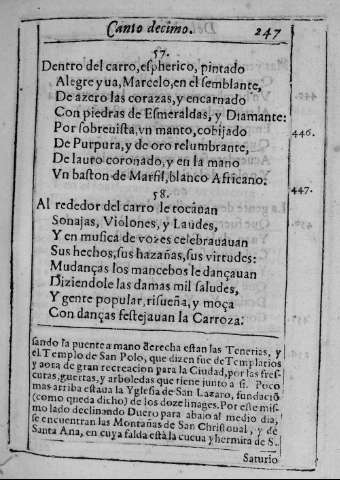 Canto decimo. 247
57.
Dentro del carro, espherico, pintado
Alegre yua, Marcelo, en el semblante,
De azero las corazas, y encarnado
Con piedras de Esmeraldas, y Diamante:
Por sobreuista, vn manto, cobijado
446.
De Purpura, y de oro relumbrante,
De lauro coronado, y en la mano
Vn baston de Marfil, blanco Africano.
447.
58.
Al rededor del carro le tocauan
Sonajas, Violones, y Laudes,
Y en musica de vozes celebrauauan
Sus hechos, sus hazañas, sus virtudes:
Mudanças los mancebos le dançauan
Diziendole las damas mil saludes,
Y gente popular, risueña, y moça
Con danças festejauan la Carroza:
sando la puente a mano derecha estan las Tenerias, y
el Templo de San Polo, que dizen fue de Templarios
y aora de gran recreacion para la Ciudad, por las fres-
curas, guertas, y arboledas que tiene junto a si. Poco
mas arriba estaua la Yglesia de San Lazaro, fundació
(como queda dicho) de los doze linages. Por este mis-
mo lado declinando Duero para abajo al medio dia,
se encuentran las Montañas de San Christoual, y de
Santa Ana, en cuya falda està la cueua y hermita de S.
Saturio